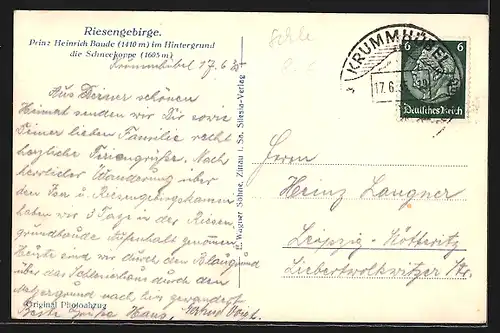 Riesengebirge.
Prinz Heinrich Baude (1410 m) im Hintergrund
die Schneekoppe (1605 m)
Krummhübel 17.6.35
Aus Deiner schönen
Heimat senden wir Dir sowie
Deiner lieben Familie recht
herzliche Feriengrüße. Nach
herrlicher Wanderung über
den Iser u. Riesengebirgskamm
haben wir 3 Tage in der Riesen
grundbaude Aufenthalt genommen.
Heute sind wir durch den Blaugrund
über das Schlesierhaus durch den
Melzergrund nach hier gewandert
Beste Grüße Hans,
Original Photoabzug
H. Wagner Söhne, Zittau i. Sa. Silesia-Verlag
KRUMMHÜBEL
17.6.35
6 6
Deutsches Reich
Herrn
Heinz Langner
Leipzig-Stötteritz
Liebertwolkwitzer Str.